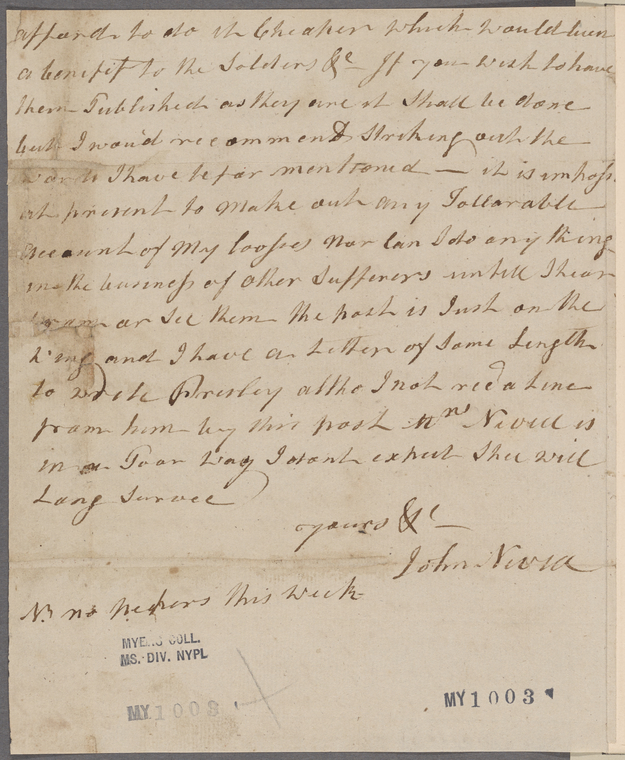 afford to do it Cheaper which would been
a benifit to the Solders &c If you wish to have
them Published as they are it Shall be done
but I woud recommend Striking out the
words I have befor mentioned — it is imposs.
at present to make out any Tollarable
account of My Loosses Nor Can I do any thing
in the business of other Sufferers untill I hear
from or See them the post is Just on the
wing and I have a Letter of Some Length
to write Presley altho I not recd a Line
from him by this post Mrs Nevill is
in a Poor Way I dont expect Shee will
Long Survee
Yours &c
John Nevill
N. no pepers this Week
MYERS COLL.
MS. DIV. NYPL
MY 1003
MY 1003